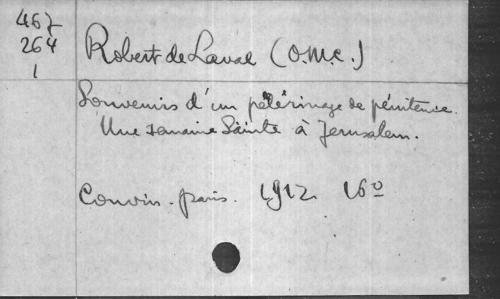 467
264
1
Robert de Laval (O.M.C.)
Souvenirs d'un pèlérinage de pénitence.
Une semaine Sainte à Jerusalem.
Couvin - paris. 1912 16º